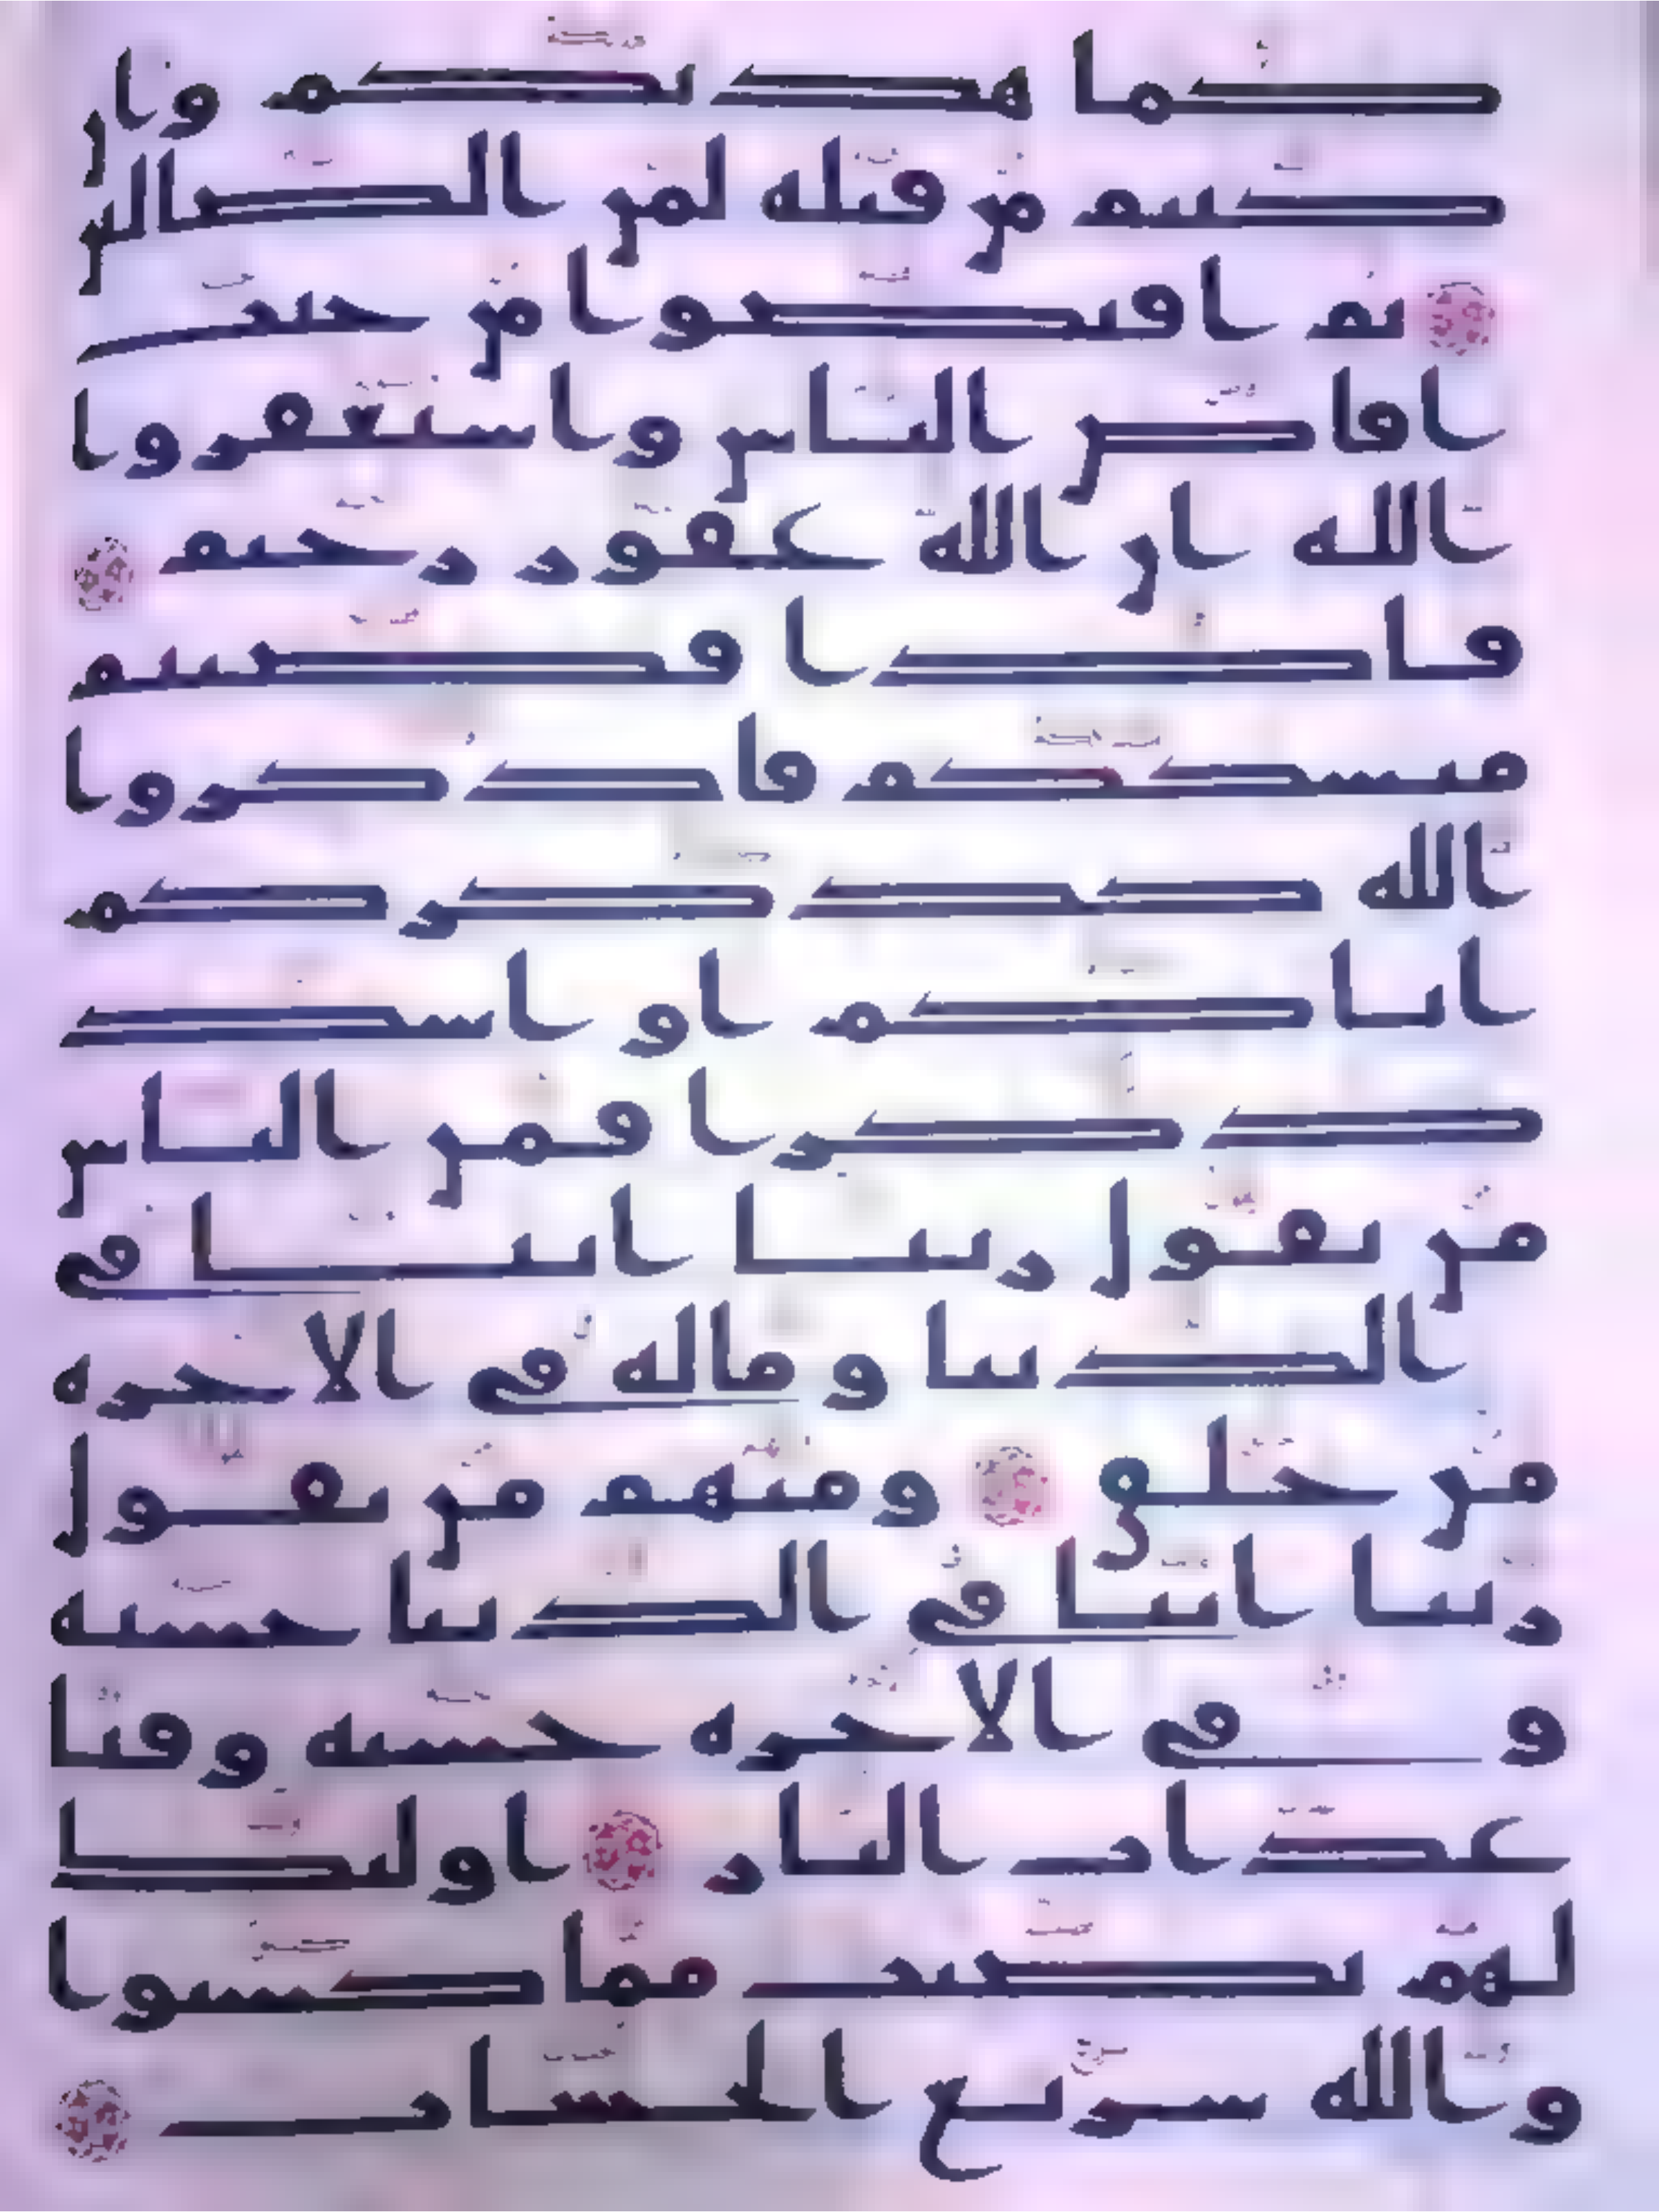 كما هديكم وان
كنتم من قبله لمن الضالين
ثم افيضوا من حيث
افاض الناس واستغفروا
الله ان الله غفور رحيم
فاذا قضيتم
منسككم فاذكروا
الله كذكركم
اباكم او اشد
ذكرا فمن الناس
من يقول ربنا اتنا في
الدنيا وما له في الاخرة
من خلق ومنهم من يقول
ربنا اتنا في الدنيا حسنة
وفي الاخرة حسنة وقنا
عذاب النار اولئك
لهم نصيب مما كسبوا
والله سريع الحساب